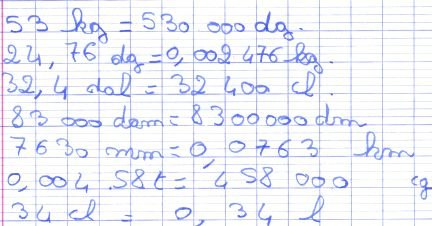 53 kg = 530 000 dg.
24,76 dg = 0,002 476 kg.
32,4 dal = 32 400 cl.
83 000 dam = 8 300 000 dm
7630 mm = 0,0763 km
0,004 58t = 458 000 cg
34 cl = 0,34 l